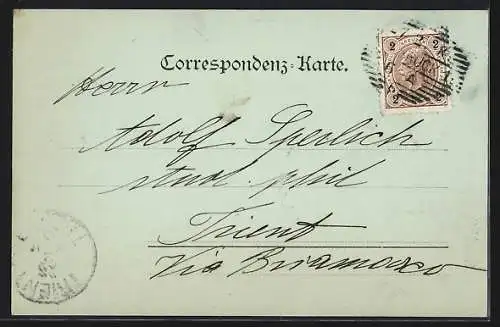 Correspondenz-Karte.
Herrn
Adolf Sperlich
stud. phil
Trient
Via Bramarzo
2 2
2 2
TRIENT